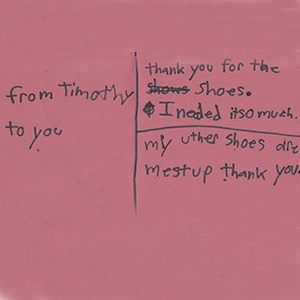 from Timothy
to you
thank you for the
shows shoes.
I neded itso much.
my uther shoes are
mest up thank you.